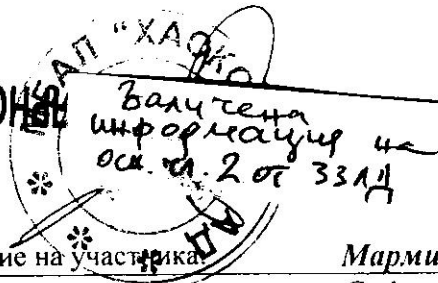 АЛ "ХАСКО
ОН
Заличена
информация на
осн. чл. 2 от ЗЗЛД
АД
ие на участника: Марми